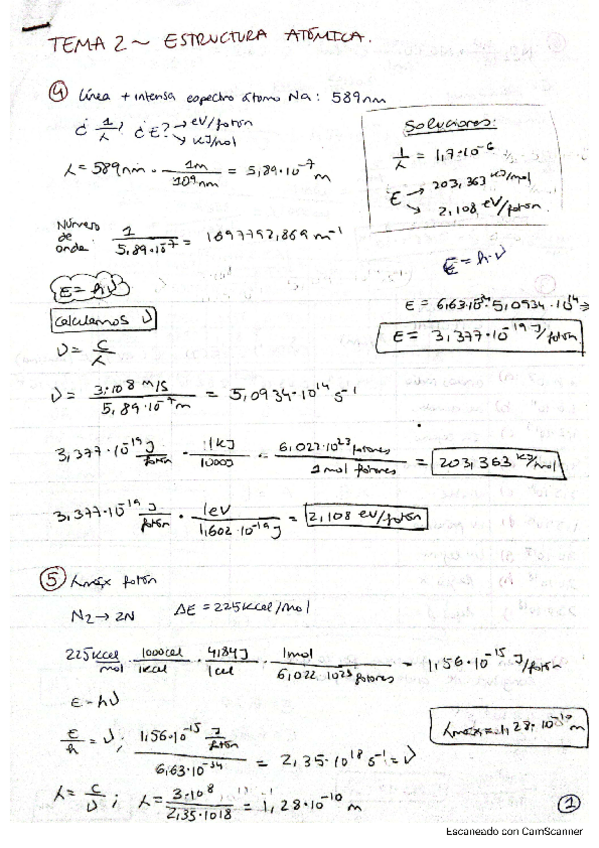 TEMA 2 ~ ESTRUCTURA ATÓMICA.
④ Línea + intensa espectro átomo Na: 589nm
¿ 1/λ? ¿E? → eV/fotón
→ KJ/mol
λ = 589nm · 1m/10⁹nm = 5,89·10⁻⁷ m
Soluciones:
1/λ = 1,7·10⁻⁶
E → 203,363 KJ/mol
→ 2,108 eV/fotón.
Número de onda. 1/5,89·10⁻⁷ = 1697792,869 m⁻¹
E = h·ν
E = hν
Calculamos ν
E = 6,63·10⁻³⁴·5,0934·10¹⁴ ⇒
E = 3,377·10⁻¹⁹ J/fotón
ν = c/λ
ν = 3·10⁸ m/s / 5,89·10⁻⁷ m = 5,0934·10¹⁴ s⁻¹
3,377·10⁻¹⁹ J/fotón · 1KJ/1000J · 6,022·10²³ fotones/1 mol fotones = 203,363 KJ/mol
3,377·10⁻¹⁹ J/fotón · 1eV/1,602·10⁻¹⁹ J = 2,108 eV/fotón
⑤ λmáx fotón
N₂ → 2N ΔE = 225Kcal/mol
225Kcal/mol · 1000cal/1Kcal · 4,184J/1cal · 1mol/6,022·10²³ fotones = 1,56·10⁻¹⁵ J/fotón
E = hν
E/h = ν; 1,56·10⁻¹⁵ J/fotón / 6,63·10⁻³⁴ = 2,35·10¹⁸ s⁻¹ = ν
λmáx = 1,28·10⁻¹⁰ m
λ = c/ν ; λ = 3·10⁸/2,35·10¹⁸ = 1,28·10⁻¹⁰ m
①
Escaneado con CamScanner